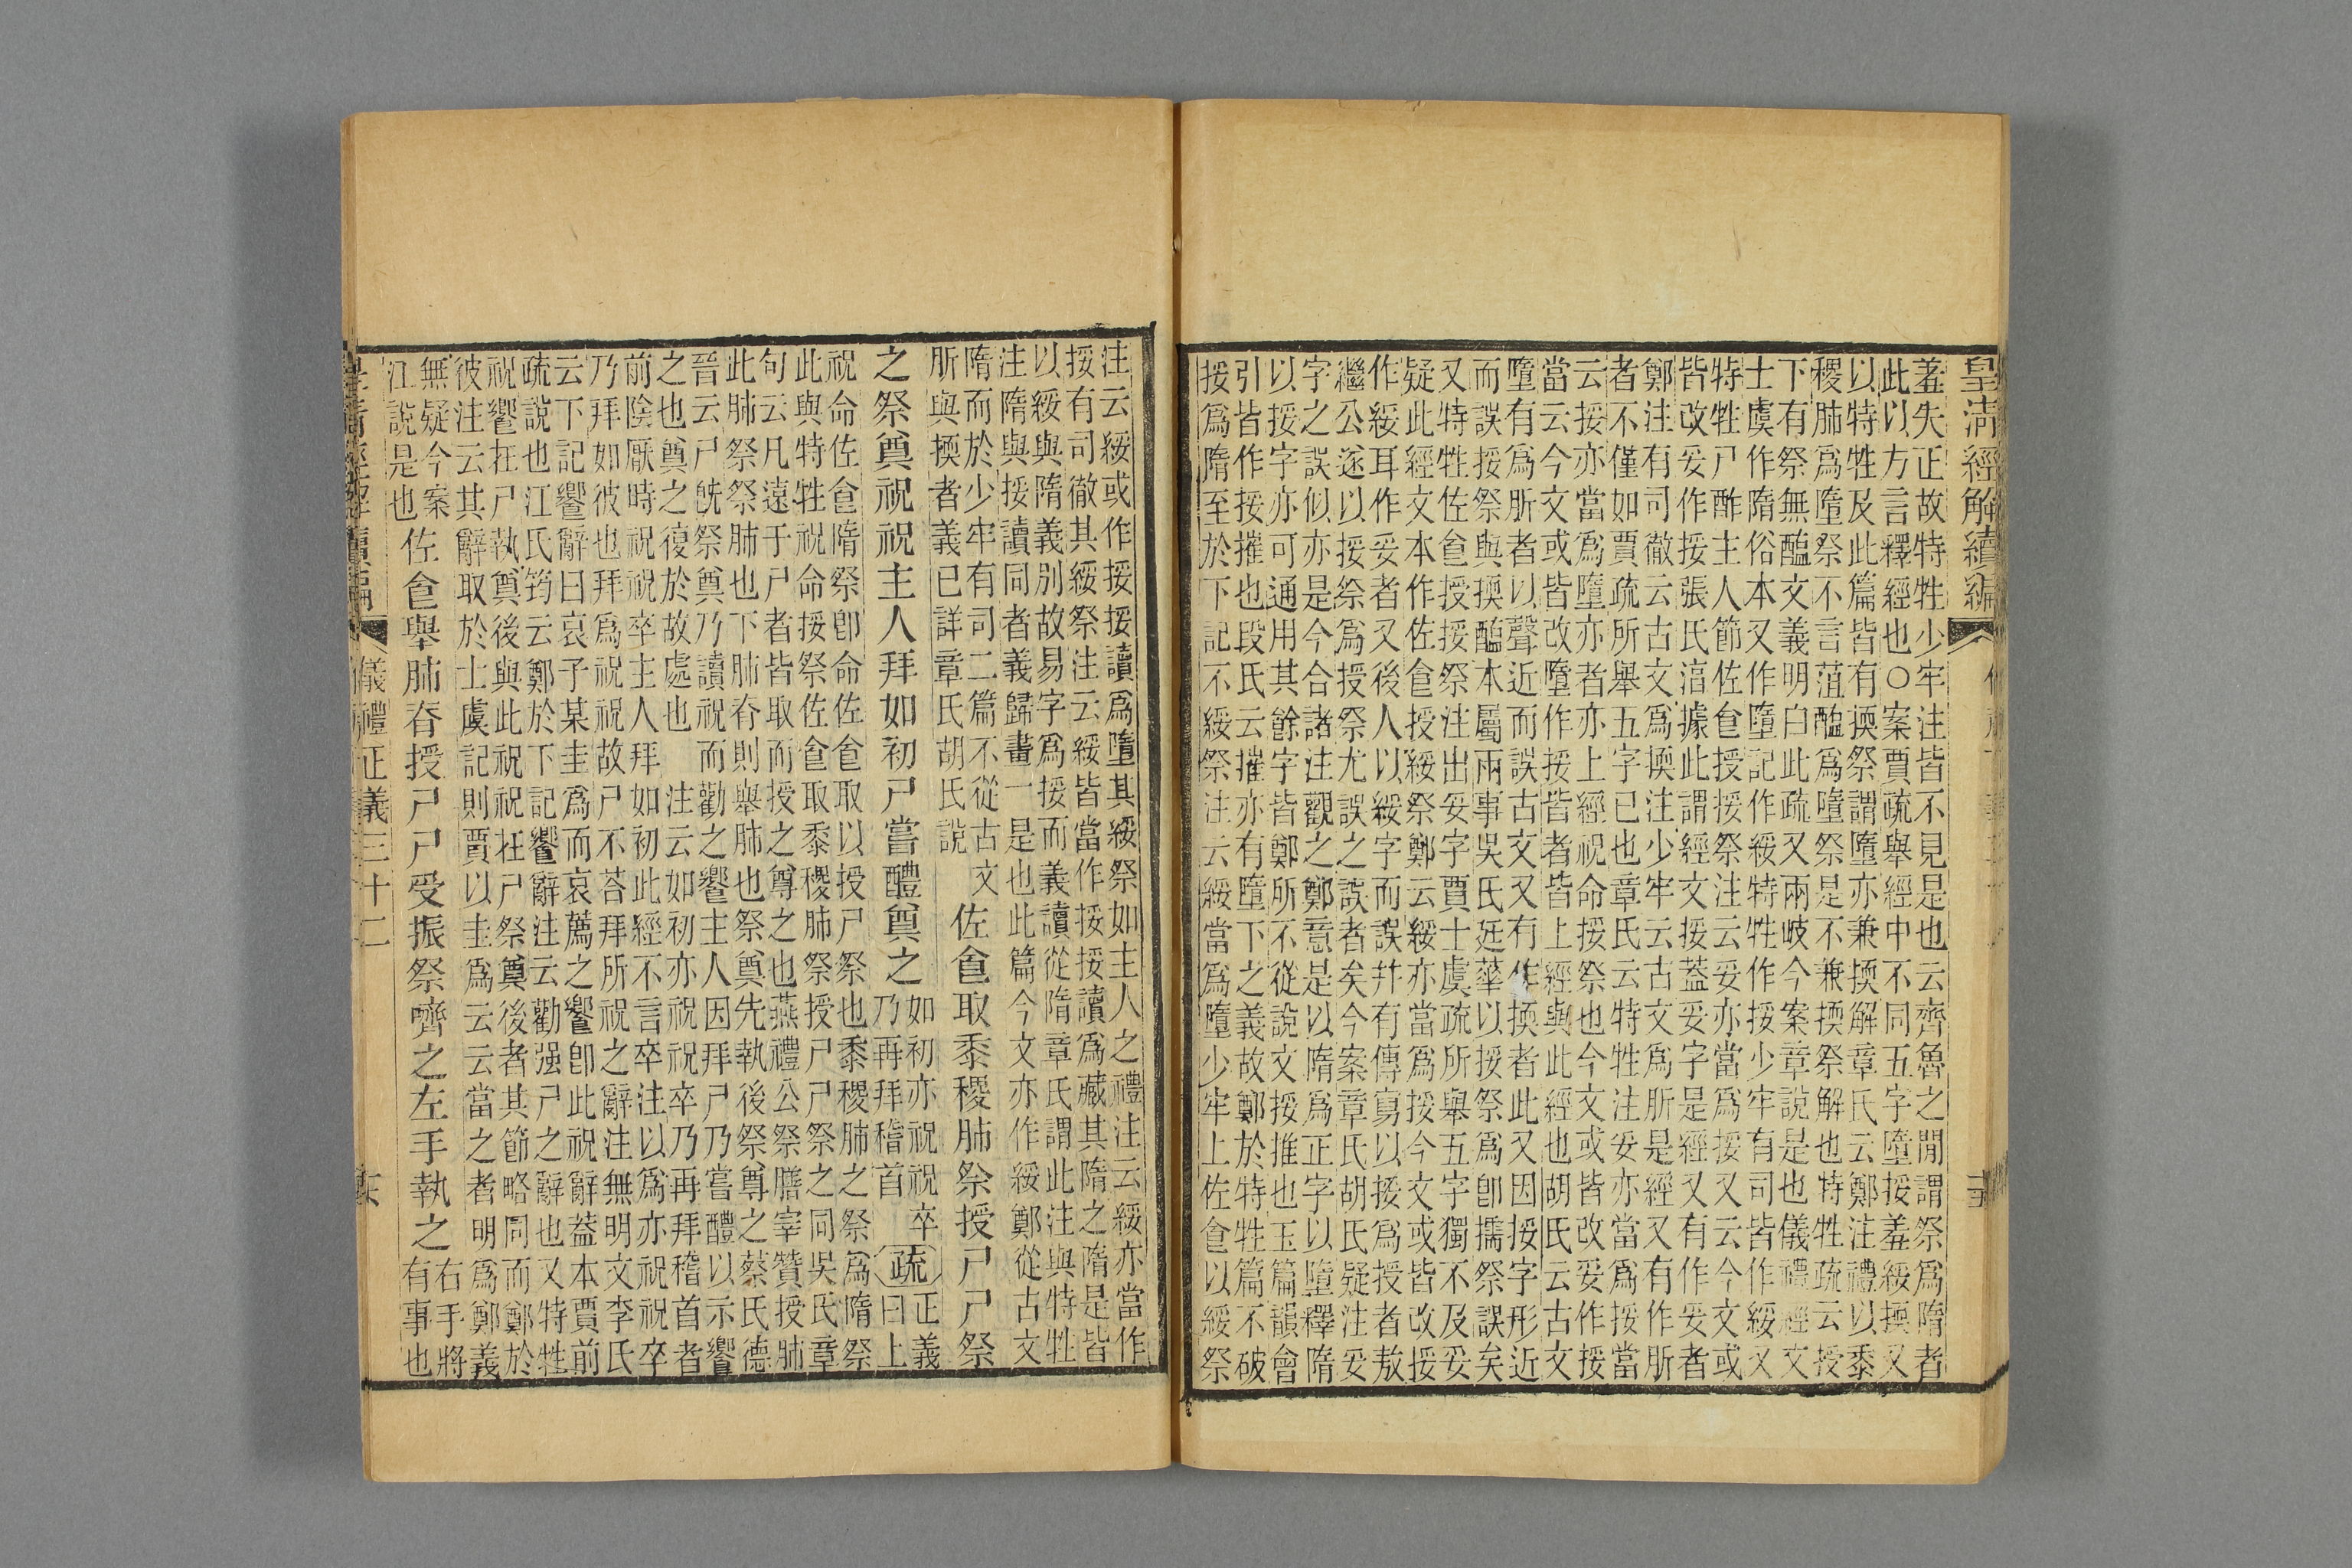 皇清經解續編
羞失正故特牲少牢注皆不見是也云齊魯之間謂祭爲隋者
此以方言釋經也○案賈疏舉經中不同五字墮挼羞綏擩又
以特牲及此篇皆有擩祭謂墮亦兼擩解章氏云鄭注禮以黍
稷肺爲墮祭不言菹醢爲墮祭是不兼擩祭解也特牲疏云授
下有祭無醢文義明白此疏又兩岐今案章說是也儀禮經文
士虞作隋俗本又作墮記作綏特牲作挼少牢有司皆作綏又
特牲尸酢主人節佐食授挼祭注云妥亦當爲挼又云今文或
皆改妥作挼張氏淳據此謂經文挼葢妥字是經又有作妥者
鄭注有司徹云古文爲擩注少牢云古文爲肵是經又有作肵
者不僅如賈疏所舉五字已也章氏云特牲注妥亦當爲挼當
云挼亦當爲墮亦者亦上經祝命挼祭也今文或皆改妥作挼
當云今文或皆改墮作挼皆者皆上經與此經也胡氏云古文
墮有爲肵者以聲近而誤古文又有作擩者此又因挼字形近
而誤挼祭與擩醢本屬兩事吳氏廷華以挼祭爲卽擩祭誤矣
又特牲佐食授挼祭注出妥字賈士虞疏所舉五字獨不及妥
疑此經文本作佐食授綏祭鄭云綏亦當爲挼今文或皆改挼
作綏耳作妥者又後人以綏字而誤幷有傳寫以挼爲授者敖
繼公遂以挼祭爲授祭尤誤之誤者矣今案章氏胡氏疑注妥
字之誤似亦是今合諸注觀之鄭意是以隋爲正字以墮釋隋
以挼字亦可通用其餘字皆鄭所不從說文挼推也玉篇韻會
引皆作挼摧也段氏云摧亦有墮下之義故鄭於特牲篇不破
挼爲隋至於下記不綏祭注云綏當爲墮少牢上佐食以綏祭
注云綏或作挼挼讀爲墮其綏祭如主人之禮注云綏亦當作
挼有司徹其綏祭注云綏皆當作挼挼讀爲藏其隋之隋是皆
以綏與隋義別故易字爲挼而義讀從隋章氏謂此注與特牲
注隋與挼讀同者義歸畫一是也此篇今文亦作綏鄭從古文
隋而於少牢有司二篇不從古文
肵與擩者義已詳章氏胡氏說
佐食取黍稷肺祭授尸尸祭
之祭奠祝祝主人拜如初尸嘗醴奠之
如初亦祝祝卒
乃再拜稽首
疏
正義
曰上
祝命佐食隋祭卽命佐食取以授尸祭也黍稷肺之祭爲隋祭
此與特牲祝命挼祭佐食取黍稷肺祭授尸尸祭之同吳氏章
句云凡遠于尸者皆取而授之尊之也燕禮公祭膳宰贊授肺
此肺祭祭肺也下肺脊則舉肺也祭奠先執後祭尊之蔡氏德
晉云尸旣祭奠乃讀祝而勸之饗主人因拜尸乃嘗醴以示饗
之也奠之復於故處也　注云如初亦祝祝卒乃再拜稽首者
前陰厭時祝祝卒主人拜如初此經不言卒注以爲亦祝祝卒
乃拜如彼也拜爲祝祝故尸不荅拜所祝之辭注無明文李氏
云下記饗辭曰哀子某圭爲而哀薦之饗卽此祝辭葢本賈前
疏說也江氏筠云鄭於下記饗辭注云勸强尸之辭也又特牲
祝饗在尸執奠後與此祝祝在尸祭奠後者其節略同而鄭於
彼注云其辭取於士虞記則賈以圭爲云云當之者明爲鄭義
無疑今案
江說是也
佐食舉肺脊授尸尸受振祭嚌之左手執之
右手將
有事也
皇清經解續編
儀禮正義三十二